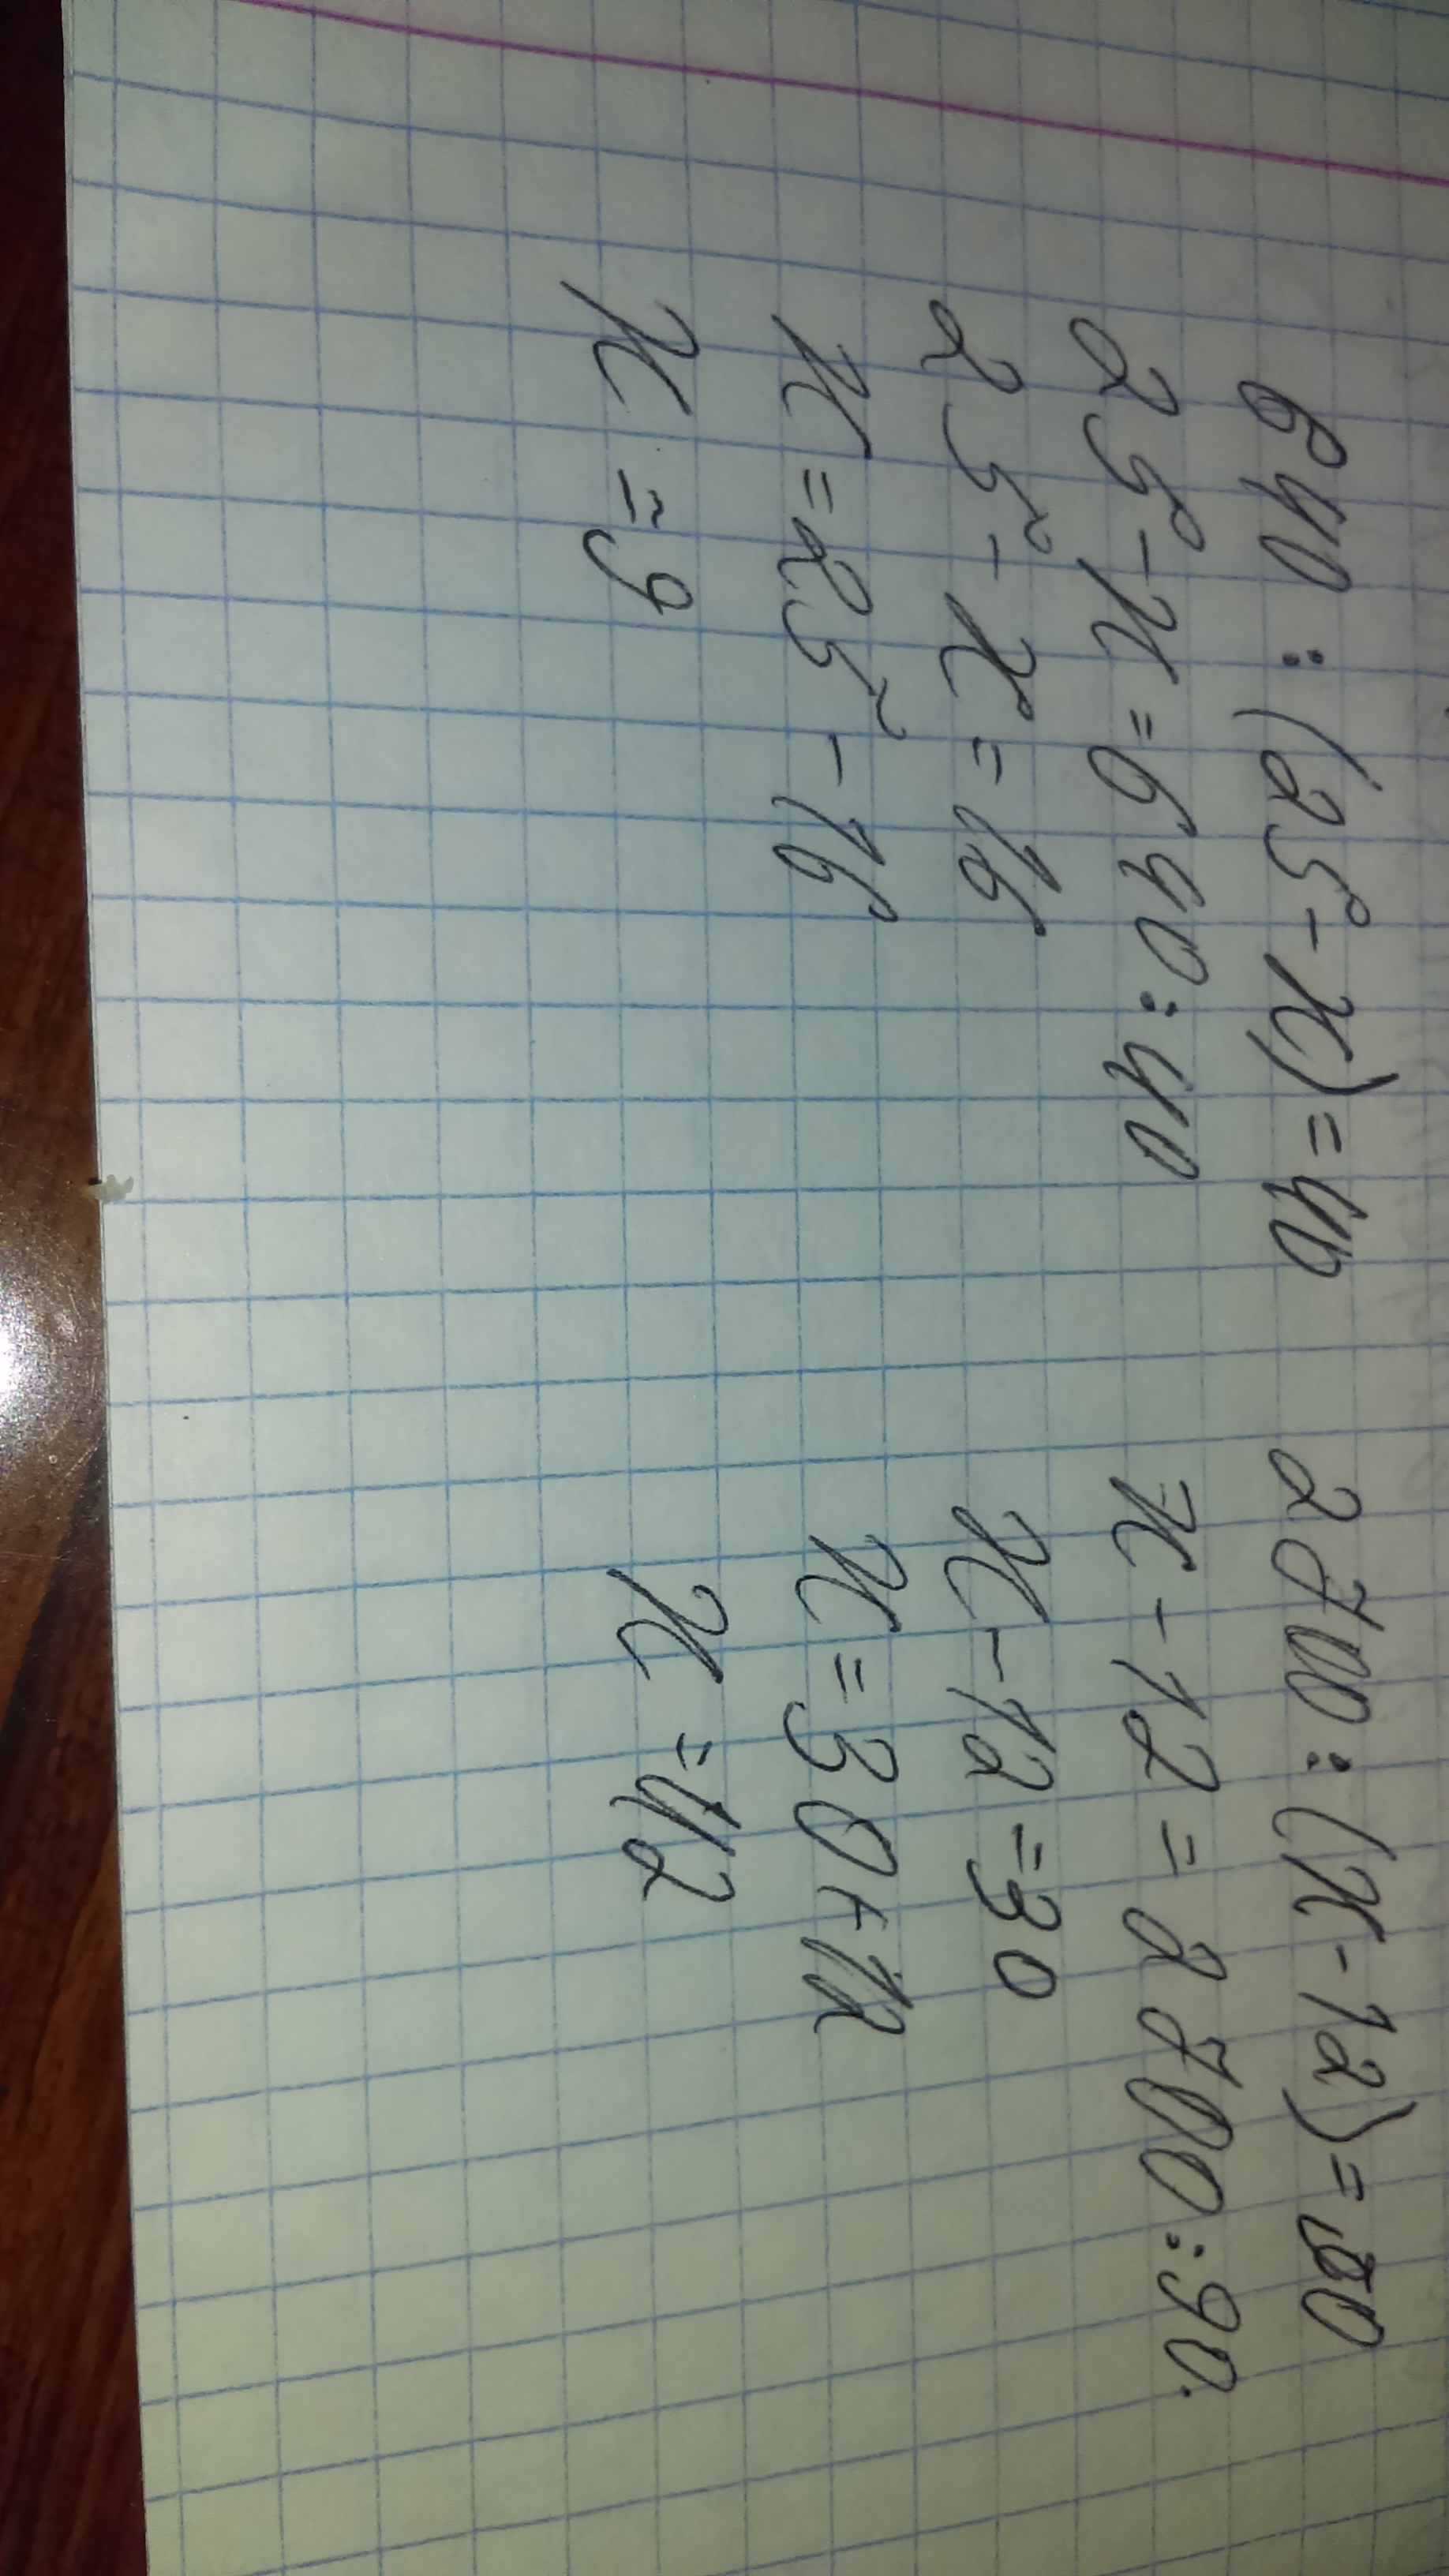 640 : (25 - x) = 40
25 - x = 640 : 40
25 - x = 16
x = 25 - 16
x = 9
2700 : (x - 12) =
x - 12 = 2700 : 90.
x - 12 = 30
x = 30 + 12
x = 42